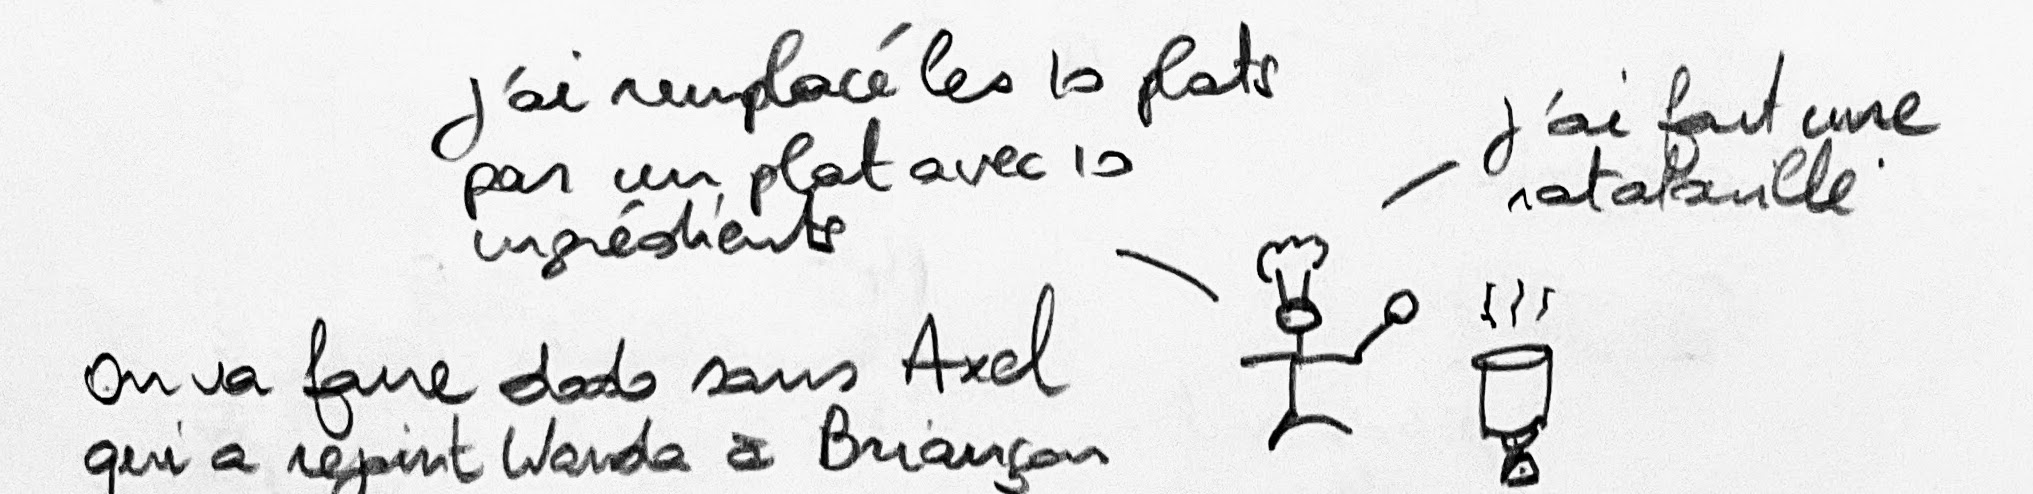 j'ai remplacé les 10 plats
par un plat avec 10
ingrédients
j'ai fait une
ratatouille
On va faire dodo sans Axel
qui a rejoint Wanda à Briançon